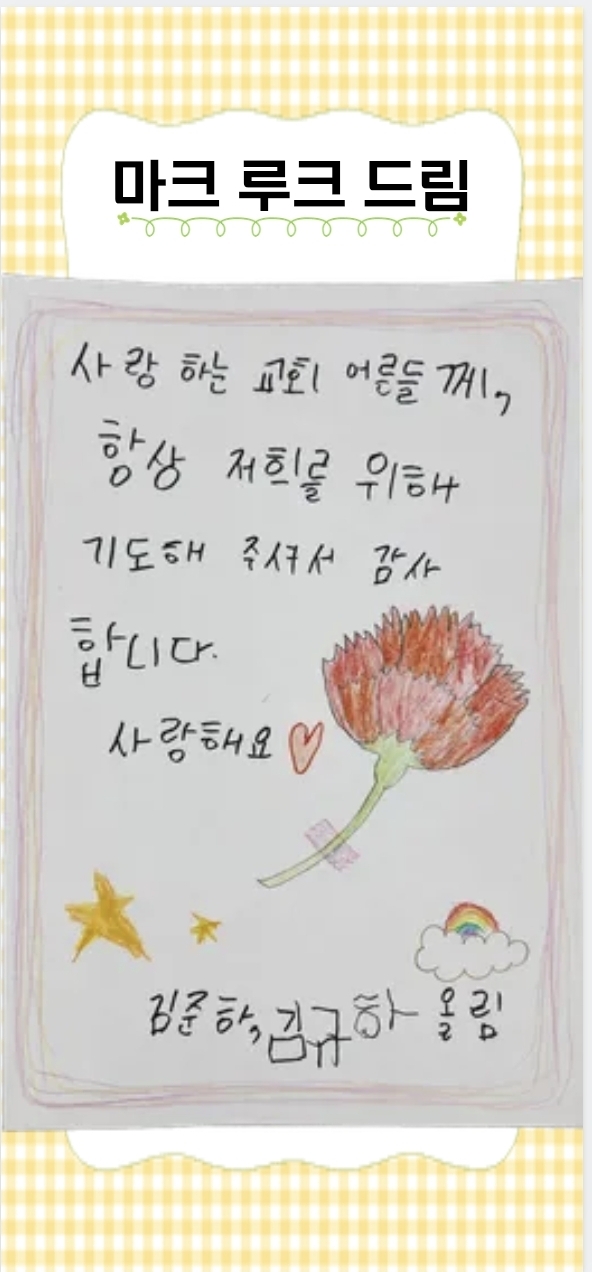 마크 루크 드림
사랑 하는 교회 어른들께,
항상 저희를 위해
기도해 주셔서 감사
합니다.
사랑해요
김준하, 김규하 올림